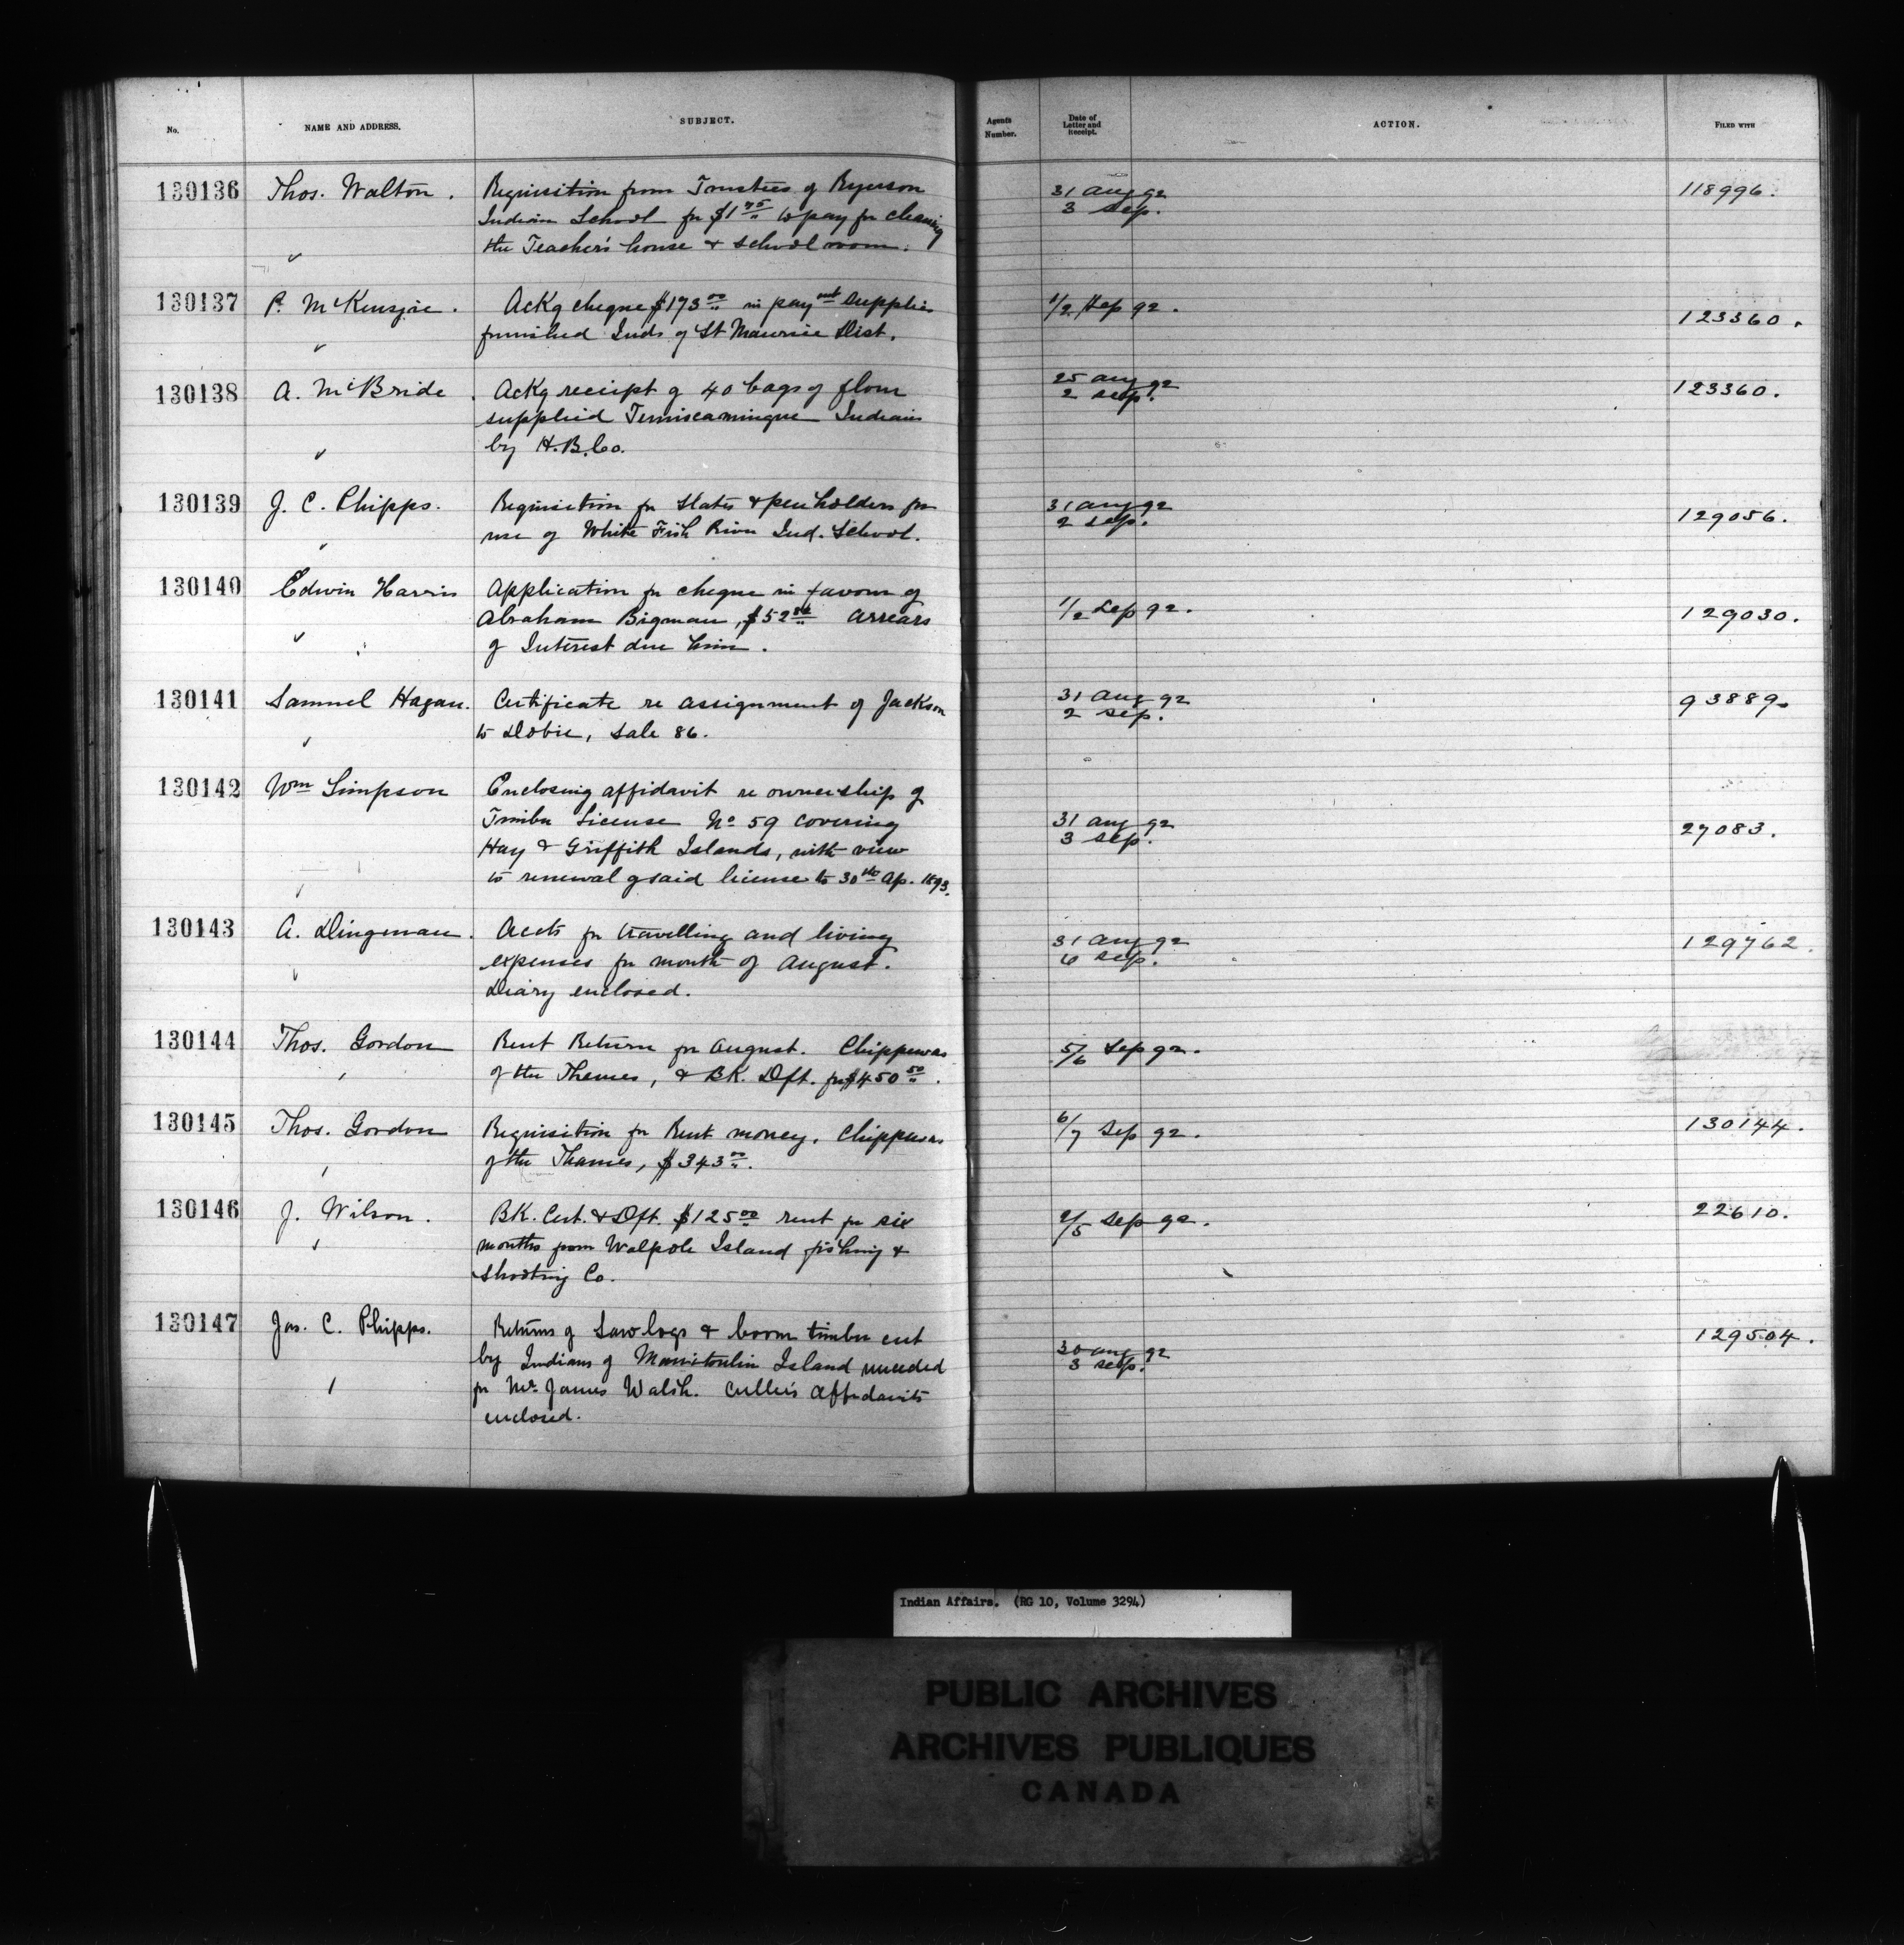 No. NAME AND ADDRESS. SUBJECT. Agents Number. Date of Letter and Receipt. ACTION. FILED WITH
130136 Thos. Walton. Requisition from Trustees of Ryerson 31 Aug 92 118996.
Indian School for $1 75 to pay for cleaning 3 Sep.
the Teacher's house & school room.
130137 P. McKenzie. Ackg cheque $173 00 in paymt supplies 1/2 Sep 92. 123360.
furnished Inds of St Maurice Dist.
130138 A. McBride. Ackg receipt of 40 bags of flour 25 Aug 92 123360.
supplied Temiscamingue Indians 2 Sep.
by H.B.Co.
130139 J. C. Phipps. Requisition for slates & penholders for 31 Aug 92 129056.
use of White Fish River Ind. School. 2 Sep.
130140 Edwin Harris Application for cheque in favour of
Abraham Bigman, $52 arrears 1/2 Sep 92. 129030.
of Interest due him.
130141 Samuel Hagan. Certificate re assignment of Jackson 31 Aug 92 93889.
to Dobie, Sale 86. 2 Sep.
130142 Wm Simpson Enclosing affidavit re ownership of
Timber License No 59 covering 31 Aug 92 27083.
Hay & Griffith Islands, with view 3 Sep.
to renewal of said license to 30th Ap. 1893.
130143 A. Dingman. Accts for travelling and living 31 Aug 92 129762.
expenses for month of August. 6 Sep.
Diary enclosed.
130144 Thos. Gordon Rent Return for August. Chippewas 5/6 Sep 92.
of the Thames, & BK. Dft. for $450 50.
130145 Thos. Gordon Requisition for Rent money. Chippewas 6/7 Sep 92. 130144.
of the Thames, $343 00.
130146 J. Wilson. BK. Cert. & Dft. $125 00 rent for six 2/5 Sep 92. 22610.
months from Walpole Island fishing &
Shooting Co.
130147 Jas. C. Phipps. Returns of Sawlogs & boom timber cut 30 Aug 92 129504.
by Indians of Manitoulin Island 3 Sep.
for Mr James Walsh. Culler's Affidavits
enclosed.
Indian Affairs. (RG 10, Volume 3294)
PUBLIC ARCHIVES
ARCHIVES PUBLIQUES
CANADA